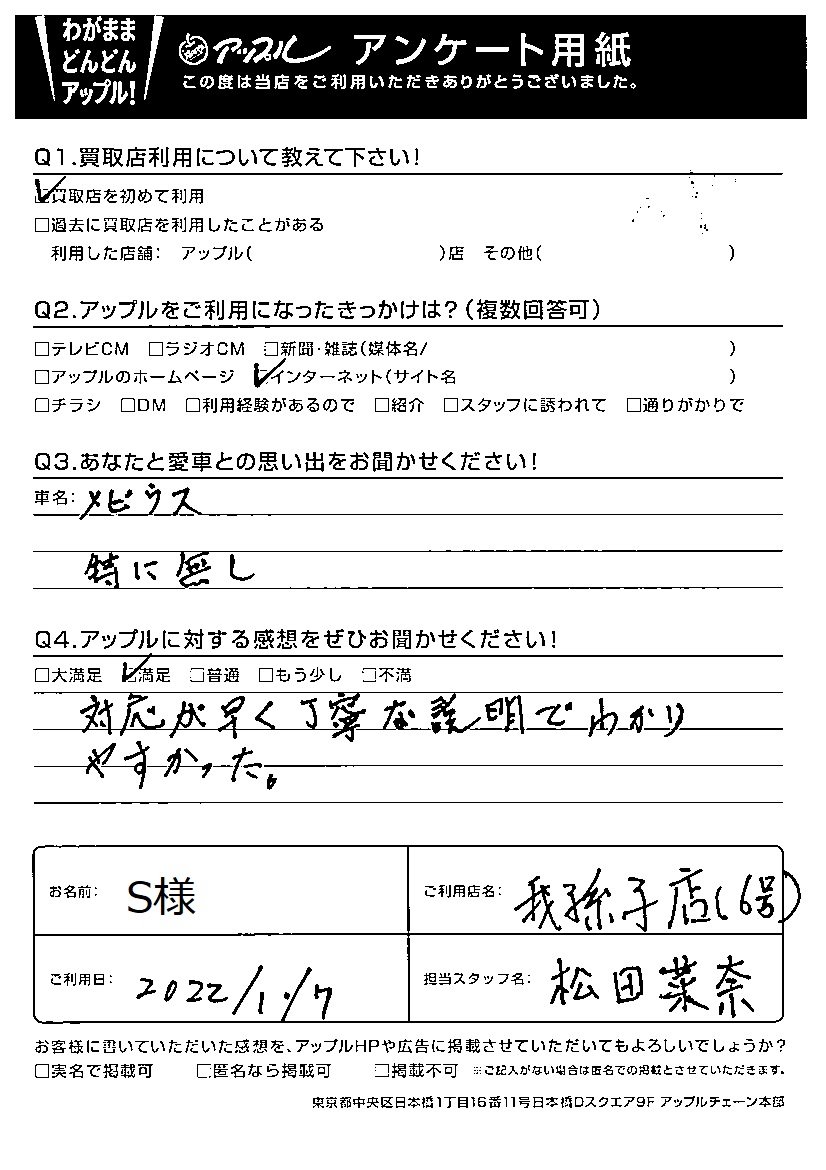 わがまま
どんどん
アップル!
アップル アンケート用紙
この度は当店をご利用いただきありがとうございました。
Q1.買取店利用について教えて下さい!
☑買取店を初めて利用
□過去に買取店を利用したことがある
利用した店舗: アップル( )店 その他( )
Q2.アップルをご利用になったきっかけは?(複数回答可)
□テレビCM □ラジオCM □新聞・雑誌(媒体名/ )
□アップルのホームページ ☑インターネット(サイト名 )
□チラシ □DM □利用経験があるので □紹介 □スタッフに誘われて □通りがかりで
Q3.あなたと愛車との思い出をお聞かせください!
車名: メビウス
特に無し
Q4.アップルに対する感想をぜひお聞かせください!
□大満足 ☑満足 □普通 □もう少し □不満
対応が早く丁寧な説明でわかり
やすかった。
お名前: S様
ご利用店名: 我孫子店(6号)
ご利用日: 2022/1/7
担当スタッフ名: 松田菜奈
お客様に書いていただいた感想を、アップルHPや広告に掲載させていただいてもよろしいでしょうか?
□実名で掲載可 □匿名なら掲載可 □掲載不可 ※ご記入がない場合は匿名での掲載とさせていただきます。
東京都中央区日本橋1丁目16番11号日本橋Dスクエア9F アップルチェーン本部